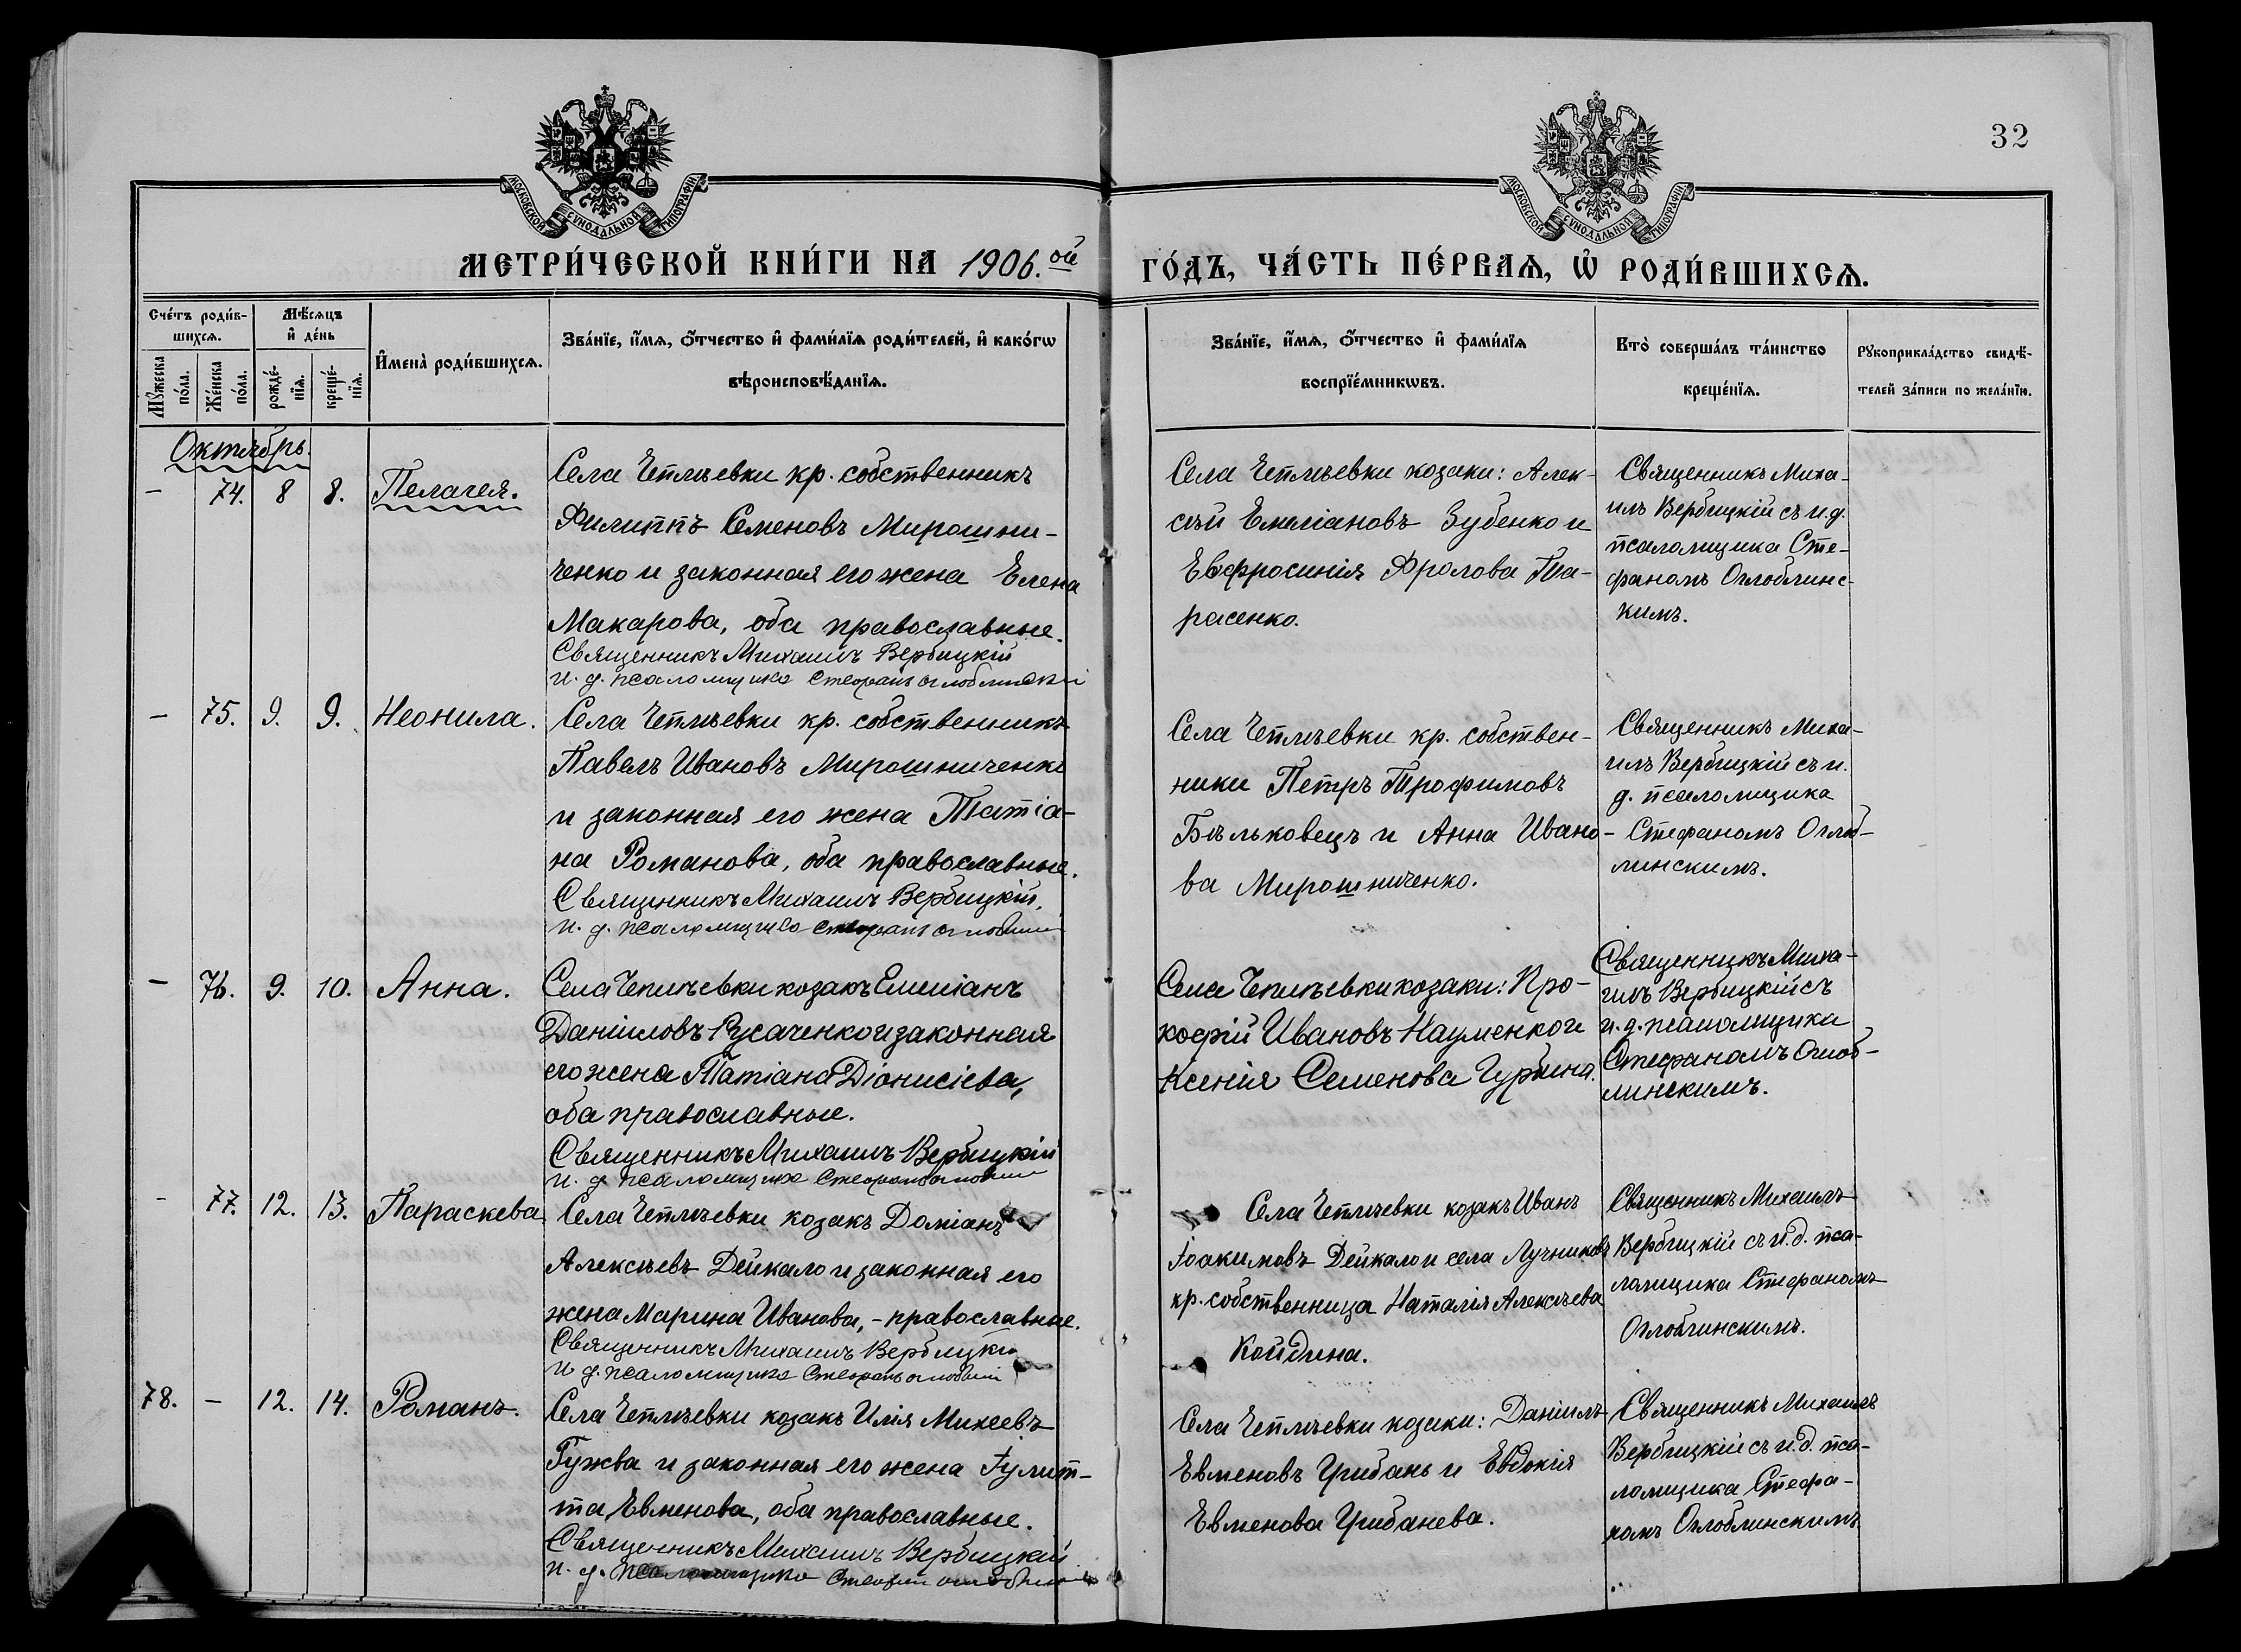 32
МОСКОВСКОЙ СѴНОДАЛЬНОЙ ТИПОГРАФІИ
МОСКОВСКОЙ СѴНОДАЛЬНОЙ ТИПОГРАФІИ
МЕТРИ́ЧЕСКОЙ КНИ́ГИ НА 1906.ой ГО́ДЪ, ЧА́СТЬ ПЕ́РВАѦ, Ѡ҆ РОДИ́ВШИХСѦ.
Сче́тъ роди́в-
шихсѧ.
Мѣ́сѧцъ
и҆ де́нь
Мꙋ́жеска
по́ла.
Же́нска
по́ла.
рожде́-
нїѧ.
креще́-
нїѧ.
И҆мена̀ роди́вшихсѧ.
Зва́нїе, и҆́мѧ, ѻ҆́тчество и҆ фами́лїѧ роди́телей, и҆ како́гѡ
вѣроисповѣ́данїѧ.
Зва́нїе, и҆́мѧ, ѻ҆́тчество и҆ фами́лїѧ
воспрїе́мникѡвъ.
Кто̀ соверша́лъ та́инство
креще́нїѧ.
Рꙋкоприкла́дство свидѣ́-
телей за́писи по жела́нїю.
Октябрь.
– 74. 8 8. Пелагея.
Села Чеплѣевки кр. собственникъ
Филиппъ Семеновъ Мирошни-
ченко и законная его жена Елена
Макарова, оба православные.
Священникъ Михаилъ Вербицкій
и. д. псаломщика Стефанъ Оглоблинскій
Села Чеплѣевки козаки: Алек-
сѣй Емеліановъ Зубенко и
Евфросинія Фролова Та-
расенко.
Священникъ Миха-
илъ Вербицкій съ и.д.
псаломщика Сте-
фаномъ Оглоблинс-
кимъ.
– 75. 9. 9. Неонила.
Села Чеплѣевки кр. собственникъ
Павелъ Ивановъ Мирошниченко
и законная его жена Татіа-
на Романова, оба православные.
Священникъ Михаилъ Вербицкій,
и. д. псаломщика Стефанъ
Села Чеплѣевки кр. собствен-
ники Петръ Трофимовъ
Бѣльковецъ и Анна Ивано-
ва Мирошниченко.
Священникъ Миха-
илъ Вербицкій съ и.
д. псаломщика
Стефаномъ Оглоб-
линскимъ.
– 76. 9. 10. Анна.
Села Чеплѣевки козакъ Емиліанъ
Даніиловъ Русаченко и законная
его жена Татіана Діонисіева,
оба православные.
Священникъ Михаилъ Вербицкій
и. д. псаломщика Стефанъ
Села Чеплѣевки козаки: Про-
кофій Ивановъ Науменко и
Ксенія Семенова Гурбина.
Священникъ Миха-
илъ Вербицкій съ
и. д. псаломщика
Стефаномъ Оглоб-
линскимъ.
- 77. 12. 13. Параскева
Села Чеплѣевки козакъ Доміанъ
Алексѣевъ Дейкало и законная его
жена Марина Иванова, - православные.
Священникъ Михаилъ Вербицкій
и д. псаломщика Стефанъ
Села Чеплѣевки козакъ Иванъ
Іоакимовъ Дейкало и села Лучниковъ
кр. собственница Наталія Алексѣева
Койдина.
Священникъ Михаилъ
Вербицкій съ и. д. пса-
ломщика Стефаномъ
Оглоблинскимъ.
78. – 12. 14. Романъ.
Села Чеплѣевки козакъ Илія Михеевъ
Гужва и законная его жена Іулит-
та Евменова, оба православные.
Священникъ Михаилъ Вербицкій
и. д. псаломщика Стефанъ
Села Чеплѣевки козаки: Даніилъ
Евменовъ Грибань и Евдокія
Евменова Грибанева.
Священникъ Михаилъ
Вербицкій съ и. д. пса-
ломщика Стефа-
номъ Оглоблинскимъ